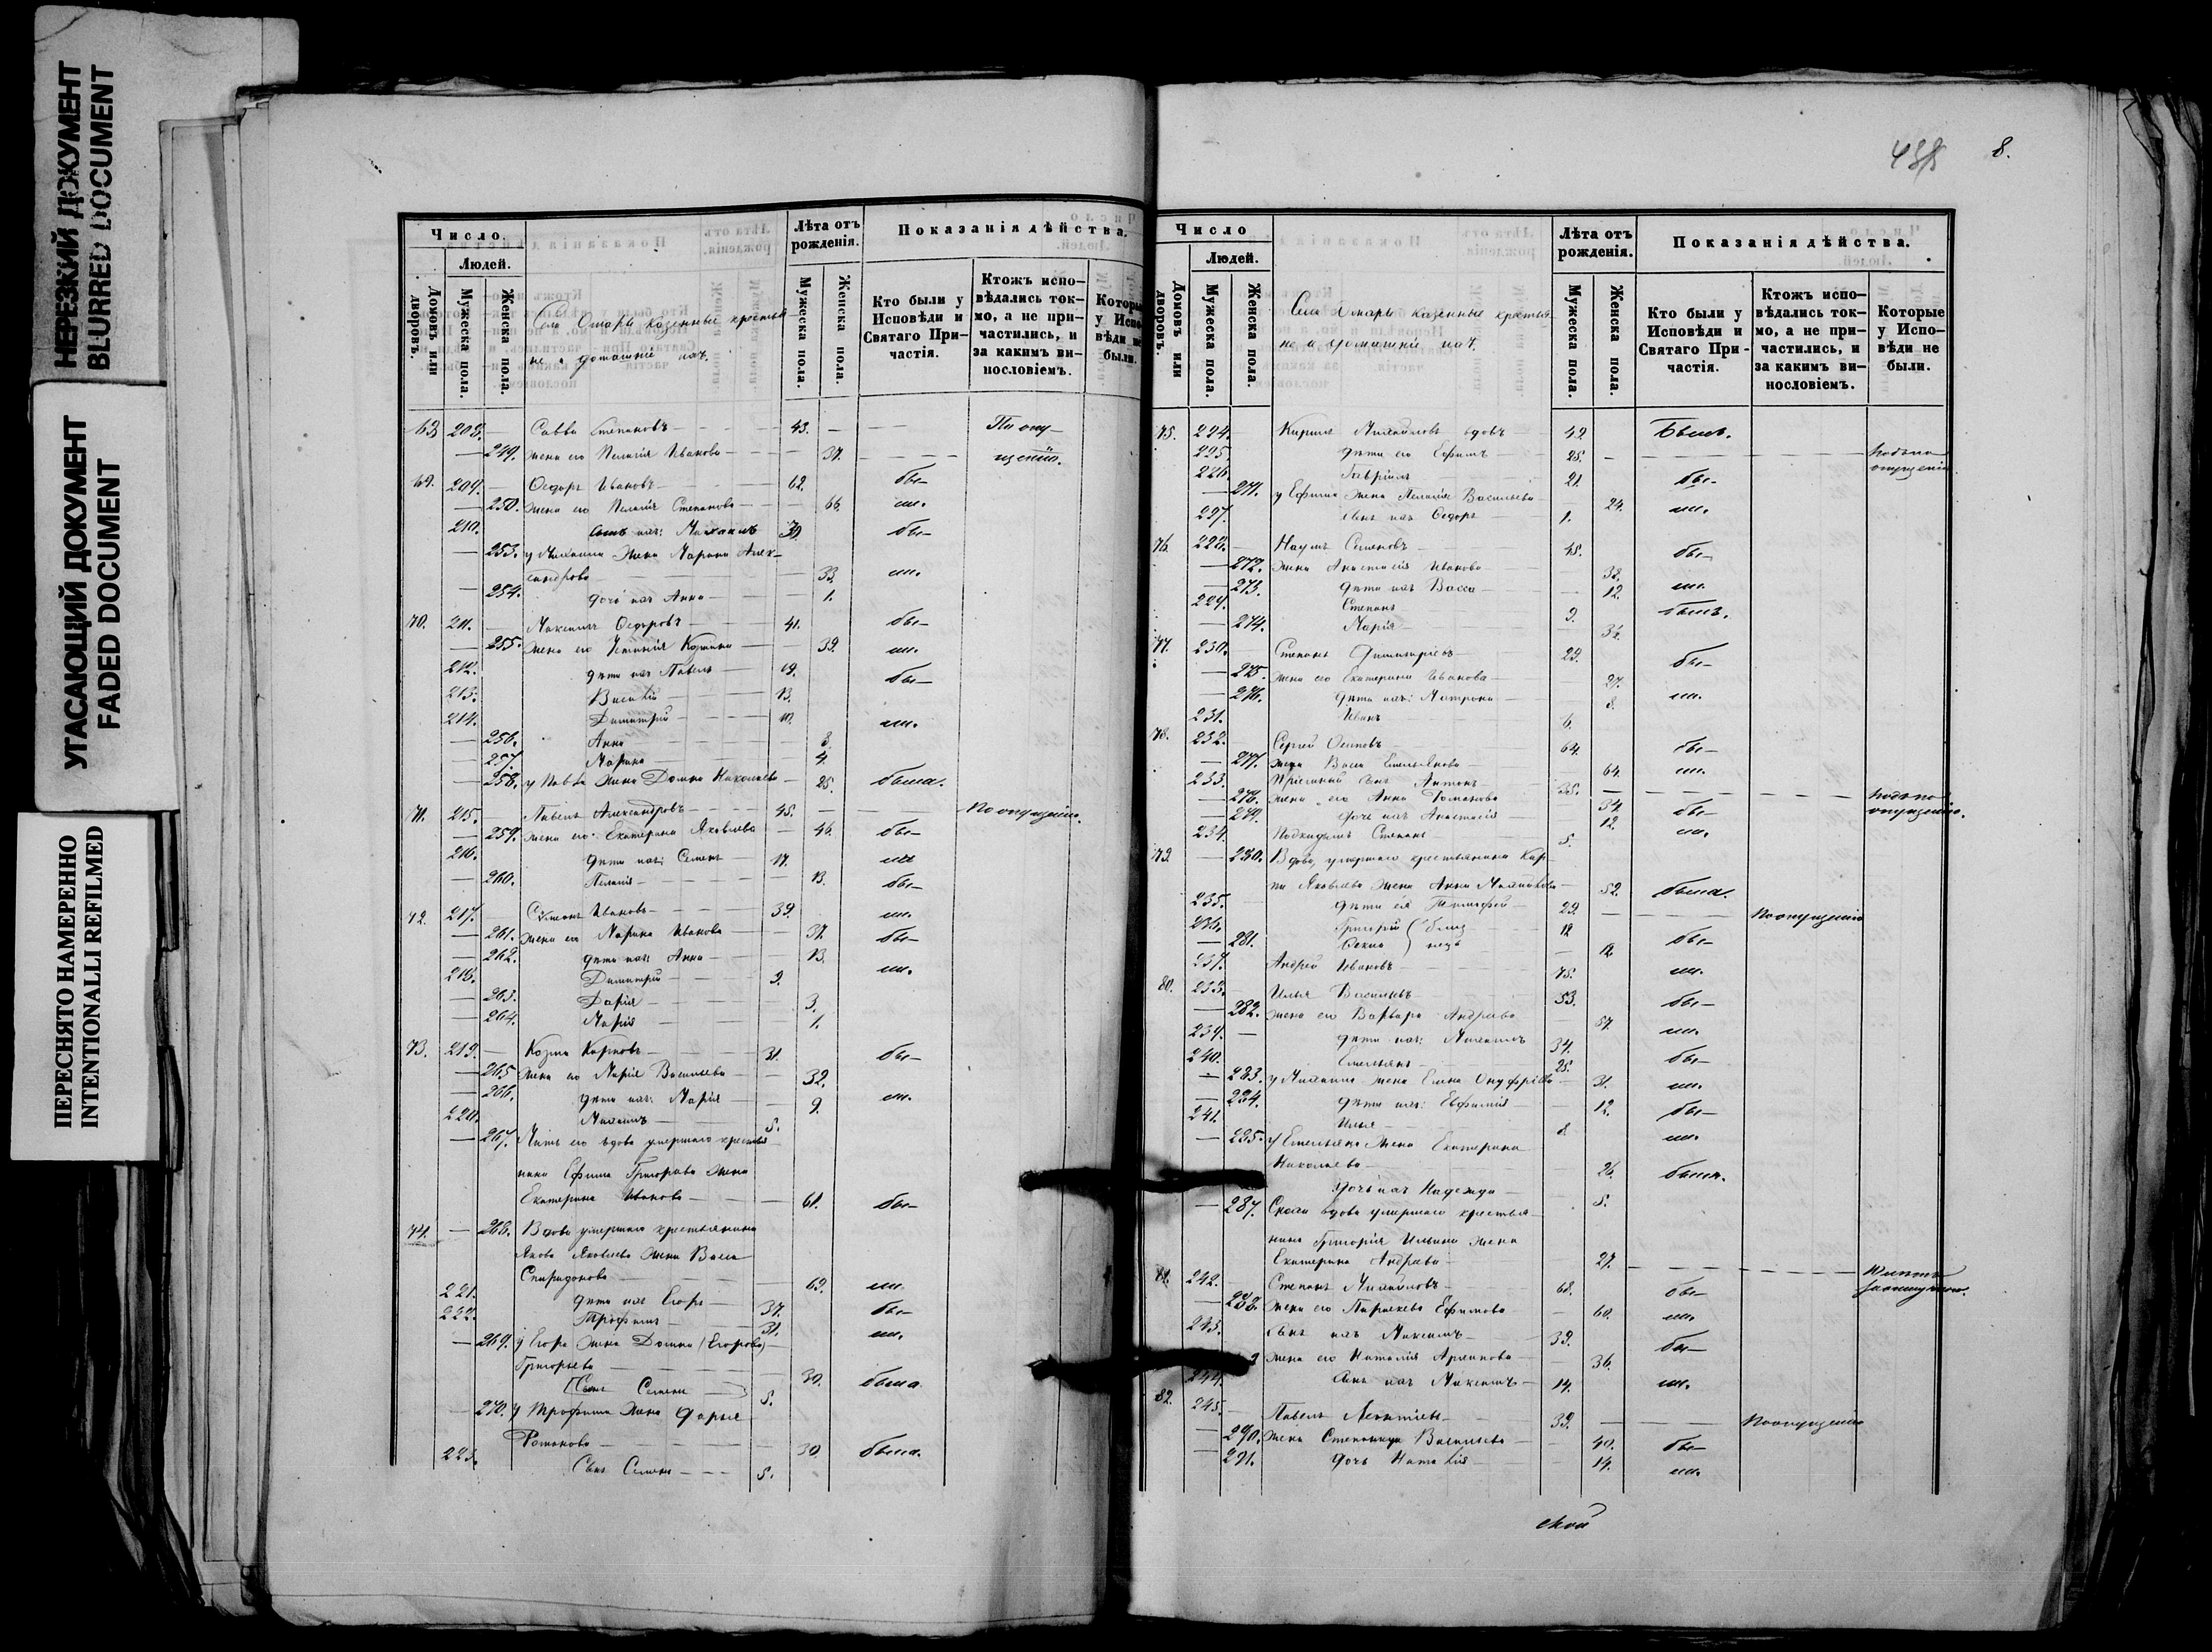 НЕРЕЗКИЙ ДОКУМЕНТ
BLURRED DOCUMENT
УГАСАЮЩИЙ ДОКУМЕНТ
FADED DOCUMENT
ПЕРЕСНЯТО НАМЕРЕННО
INTENTIONALLI REFILMED
Число.
Людей.
Домовъ или дворовъ.
Мужеска пола.
Женска пола.
Лѣта отъ рожденія.
Мужеска пола.
Женска пола.
Показанія дѣйства.
Кто были у Исповѣди и Святаго Причастія.
Ктожъ исповѣдались токмо, а не причастились, и за какимъ винословіемъ.
Которые у Исповѣди не были.
208. Савва Степановъ 43.
249. жена его Пелагія Иванова 37.
209. Ѳедоръ Ивановъ 62. бы-
250. жена его Пелагія Степанова 66. ли.
210. Михаилъ бы-
253. у Михаила жена Марина Алек-
сандрова 33. ли.
254. дочь ихъ Анна 1.
70. 211. Максимъ Ѳедоровъ 41. бы-
255. жена его 39. ли.
212. дѣти ихъ Павелъ 19. бы-
213. Василій 13.
214. Димитрій 10. ли.
256. Анна 8.
257. Марина 4.
258. у Павла жена Домна Николаева 25. была.
71. 215. Павелъ Александровъ 45. По опущенію.
259. жена его Екатерина Яковлева 46. бы-
216. дѣти ихъ: Семенъ 17. ли
260. Пелагія 13. бы-
72. 217. Ивановъ 39. ли.
261. жена его Марина Иванова 37. бы-
262. дѣти ихъ: Анна 13.
218. Димитрій 9. ли.
263. Дарія 3.
264. Марія 1.
73. 219. Козма Карповъ 31. бы-
265. жена его Марія Васильева 32.
266. дѣти ихъ: Марія 9. ли.
220. Михаилъ 5.
267. Мать его вдова умершаго крестья-
нина Ефима Григорьева жена
Екатерина Иванова 61. бы-
74. 268. Вдова умершаго крестьянина
Якова Яковлева жена Васса
Спиридонова 69. ли.
221. дѣти ихъ Егоръ 37. бы-
222. Трофимъ 31. ли.
269. у Егора жена Домна (Егорова)
Григорьева 30. была
Сынъ Семенъ 5.
270. у Трофима жена Дарья
Романова 30 была.
223. Сынъ Семенъ 5.
8.
Число
Людей.
Домовъ или дворовъ.
Мужеска пола.
Женска пола.
Лѣта отъ рожденія.
Мужеска пола.
Женска пола.
Показанія дѣйства.
Кто были у Исповѣди и Святаго Причастія.
Ктожъ исповѣдались токмо, а не причастились, и за какимъ винословіемъ.
Которые у Исповѣди не были.
75. 224. Кирилъ Михайловъ вдовъ 49 Былъ.
225. дѣти его Ефимъ 25.
226. Гаврiилъ 21. бы-
271. у Ефима жена Пелагія Васильева 24. ли.
227. сынъ ихъ Ѳедоръ 1.
76. 228. Наумъ Семеновъ 45. бы-
272. жена Анастасія Иванова 38. ли.
273. дѣти ихъ Васса 12.
Степанъ 9. былъ.
274. Марія
77. 230. Степанъ Димитріевъ 29. бы-
275. жена его Екатерина Иванова 27.
276. дѣти ихъ: Матрона 8. ли.
231. Иванъ 6.
78. 232. Сергѣй Осиповъ 64. бы-
277. жена Васса Емельянова 64. ли.
233. Пріемный сынъ Антонъ 35.
278. жена его Анна Романова 34. бы-
279. дочь ихъ Анастасія 12. ли.
234. Подкидышъ Степанъ 5.
79. 280. Вдова умершаго крестьянина Кар-
па Яковлева жена Анна Михайлова 52. была.
235. дѣти ея Тимофей 29. По опущенію
236. Григорій 12 бы-
281. 12.
237. Андрей Ивановъ 75. ли.
80. 238. Илья Васильевъ 53. бы-
282. жена его Варвара Андреева 57. ли.
239. дѣти ихъ: Михаилъ 34.
240. Емельянъ 25. бы-
283. у Михаила жена Елена Онуфріева 31. ли.
284. дѣти ихъ: Евфимія 12. бы-
241. Илья 8 ли.
285. у Емельяна жена Екатерина
Николаева 26. была.
дочь ихъ Надежда 5.
287. Сноха вдова умершаго крестья-
нина Григорія Ильина жена
Екатерина Андреева 27.
81. 242. Степанъ Михайловъ 68. бы-
288. жена его Параскева Ефимова 60. ли.
243. сынъ ихъ Максимъ 39. бы-
жена его Наталія Архипова 36.
244. сынъ ихъ Максимъ 14. ли.
82. 245. Павелъ Леонтіевъ 39. По опущенію
290. жена Степанида Васильева 40. бы-
291. дочь Наталія 14. ли.